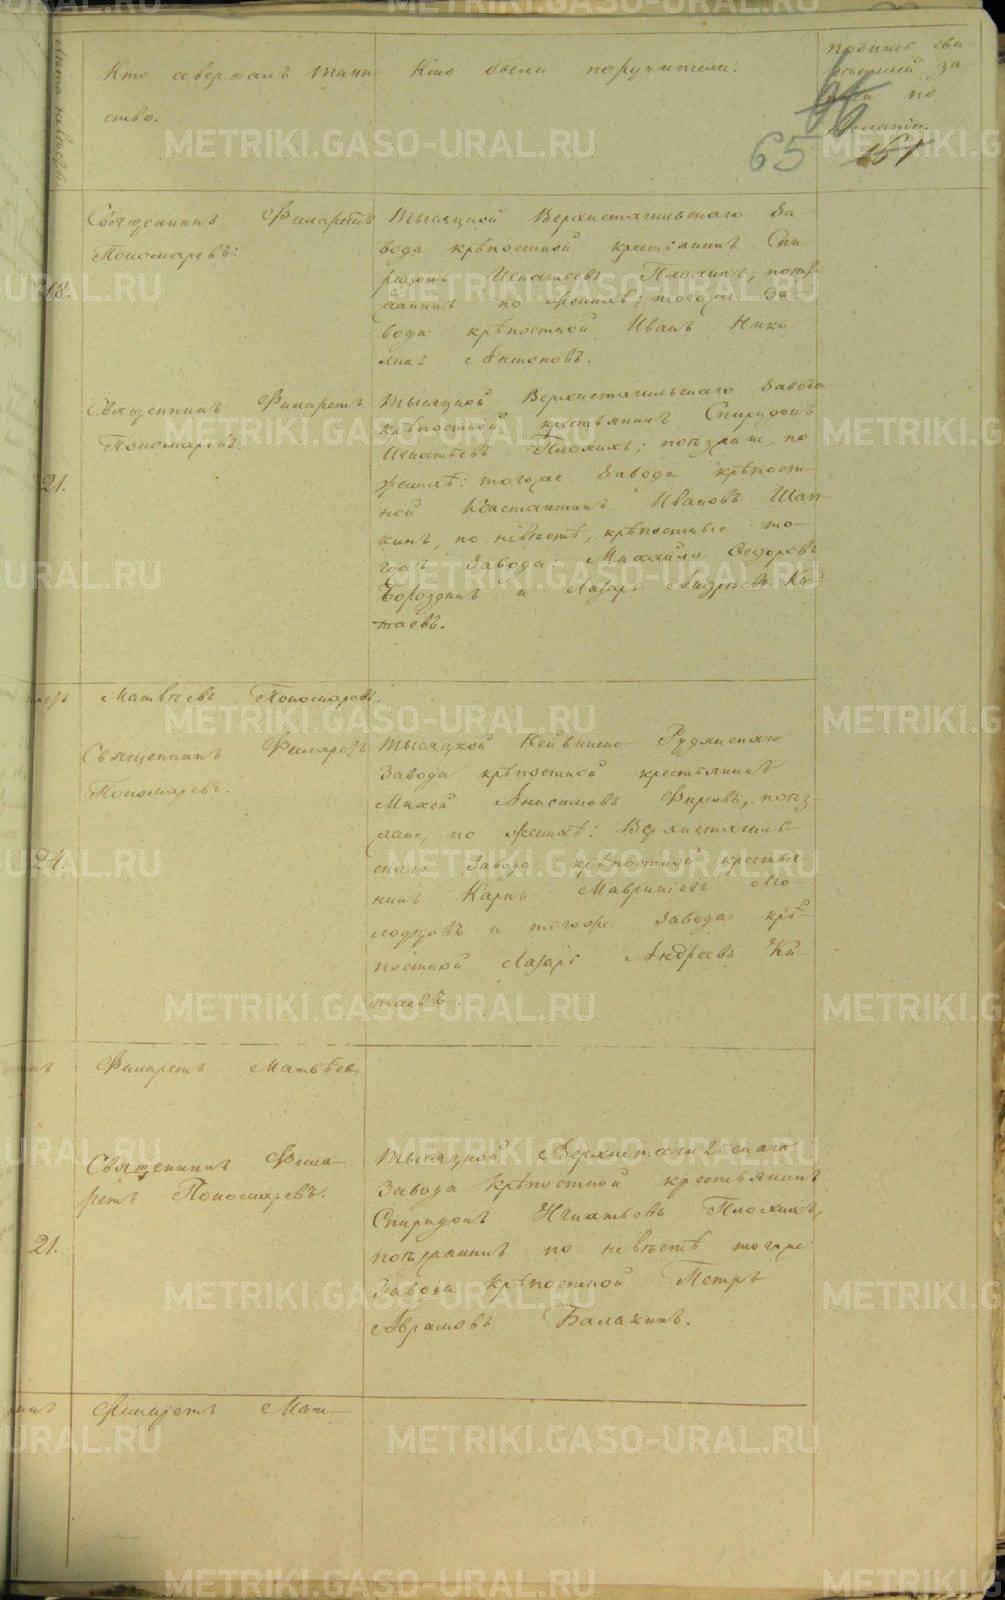 Кто совершалъ таин
ство.
Кто были поручители.
подпись сви
дѣтелей за
писи по
желанію.
65
66
151
Священникъ Филаретъ
Пономаревъ.
18.
Тысяцкой Верхнетагильскаго За
вода крѣпостной крестьянинъ Спи
ридонъ Игнатьевъ Плохихъ, поѣз
жанинъ по женихѣ: тогоже За
вода крѣпостной Иванъ Нико
линъ Антоновъ.
Священникъ Филаретъ
Пономаревъ.
21.
Тысяцкой Верхнетагильскаго Завода
крѣпостной крестьянинъ Спиридонъ
Игнатьевъ Плохихъ; поѣзжане, по
женихѣ: тогоже Завода крѣпост-
ной Константинъ Ивановъ Шап-
кинъ, по невѣстѣ, крѣпостные то-
гожъ Завода: Михайло Ѳедоровъ
Бороздинъ и Лазарь Андреевъ Ки
таевъ.
Матвѣевъ Пономаревъ.
Священникъ Филаретъ
Пономаревъ.
24.
Тысяцкой Нейвинско Рудянскаго
Завода крѣпостной крестьянинъ
Михей Анисимовъ Фирсовъ, поѣз-
жане, по женихѣ: Верхнетагиль-
скаго Завода крѣпостной крестья-
нинъ Карпъ Маврикіевъ Мо-
лодцовъ и тогоже Завода крѣ
постной Лазарь Андреевъ Ки
таевъ.
Филаретъ Матвѣев
Священникъ Фила-
ретъ Пономаревъ.
21.
Тысяцкой Верхнетагильскаго
Завода крѣпостной крестьянинъ
Спиридонъ Игнатьевъ Плохихъ,
поѣзжанинъ по невѣстѣ тогоже
Завода крѣпостной Петръ
Аврамовъ Балакинъ.
Филаретъ Мат-
METRIKI.GASO-URAL.RU